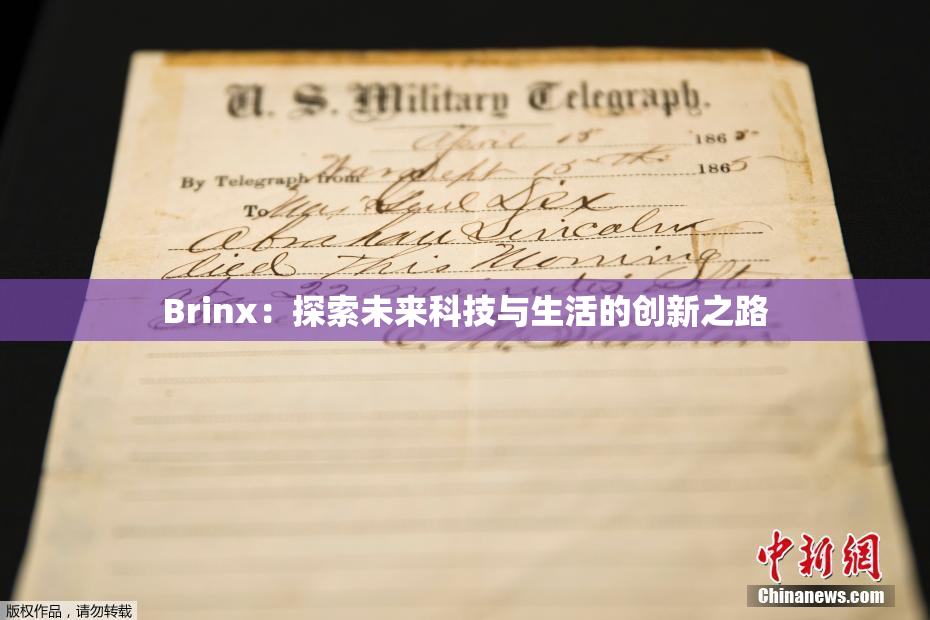 U. S. Military Telegraph.
April 15 1865
By Telegraph from War Dept 15th 1865
To Maj Genl Dix
Abraham Lincoln
died This Morning
at 22 minutes after
Brinx：探索未来科技与生活的创新之路
E. M. Stanton
中新网
Chinanews.com
版权作品，请勿转载